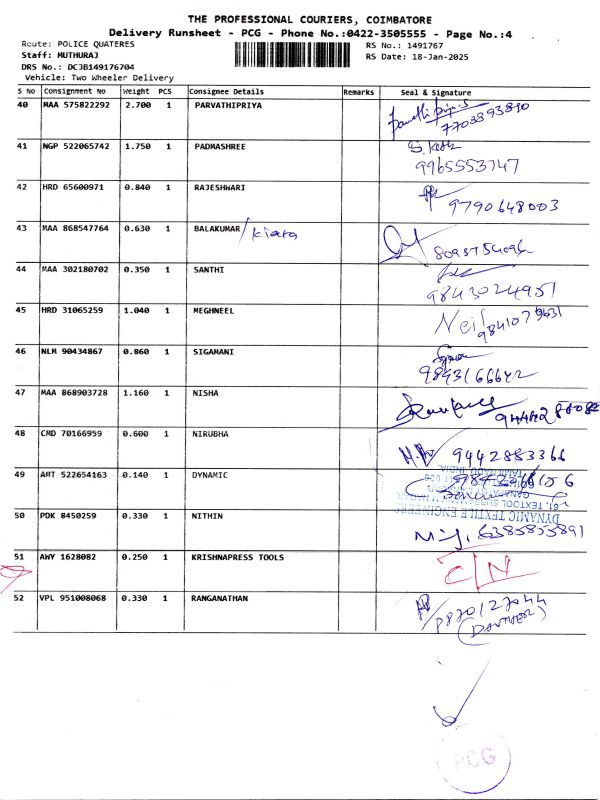 THE PROFESSIONAL COURIERS, COIMBATORE
Delivery Runsheet - PCG - Phone No.:0422-3505555 - Page No.:4
Route: POLICE QUATERES RS No.: 1491767
Staff: MUTHURAJ RS Date: 18-Jan-2025
DRS No.: DCJB149176704
Vehicle: Two Wheeler Delivery
S No Consignment No Weight PCS Consignee Details Remarks Seal & Signature
40 MAA 575822292 2.700 1 PARVATHIPRIYA
7708893890
41 NGP 522065742 1.750 1 PADMASHREE
9965553747
42 HRD 65600971 0.840 1 RAJESHWARI
9790648003
43 MAA 868547764 0.630 1 BALAKUMAR / kiara
44 MAA 302180702 0.350 1 SANTHI
9843024951
45 HRD 31065259 1.040 1 MEGHNEEL
Neil
9841079631
46 NLM 90434867 0.860 1 SIGAMANI
9893166642
47 MAA 868903728 1.160 1 NISHA
48 CMD 70166959 0.600 1 NIRUBHA
9442883366
49 ART 522654163 0.140 1 DYNAMIC
DYNAMIC TEXTILE ENGINEERS
TAMILNADU, INDIA.
50 PDK 8450259 0.330 1 NITHIN
6385855891
51 AWY 1628082 0.250 1 KRISHNAPRESS TOOLS
C/N
52 VPL 951008068 0.330 1 RANGANATHAN
PCG